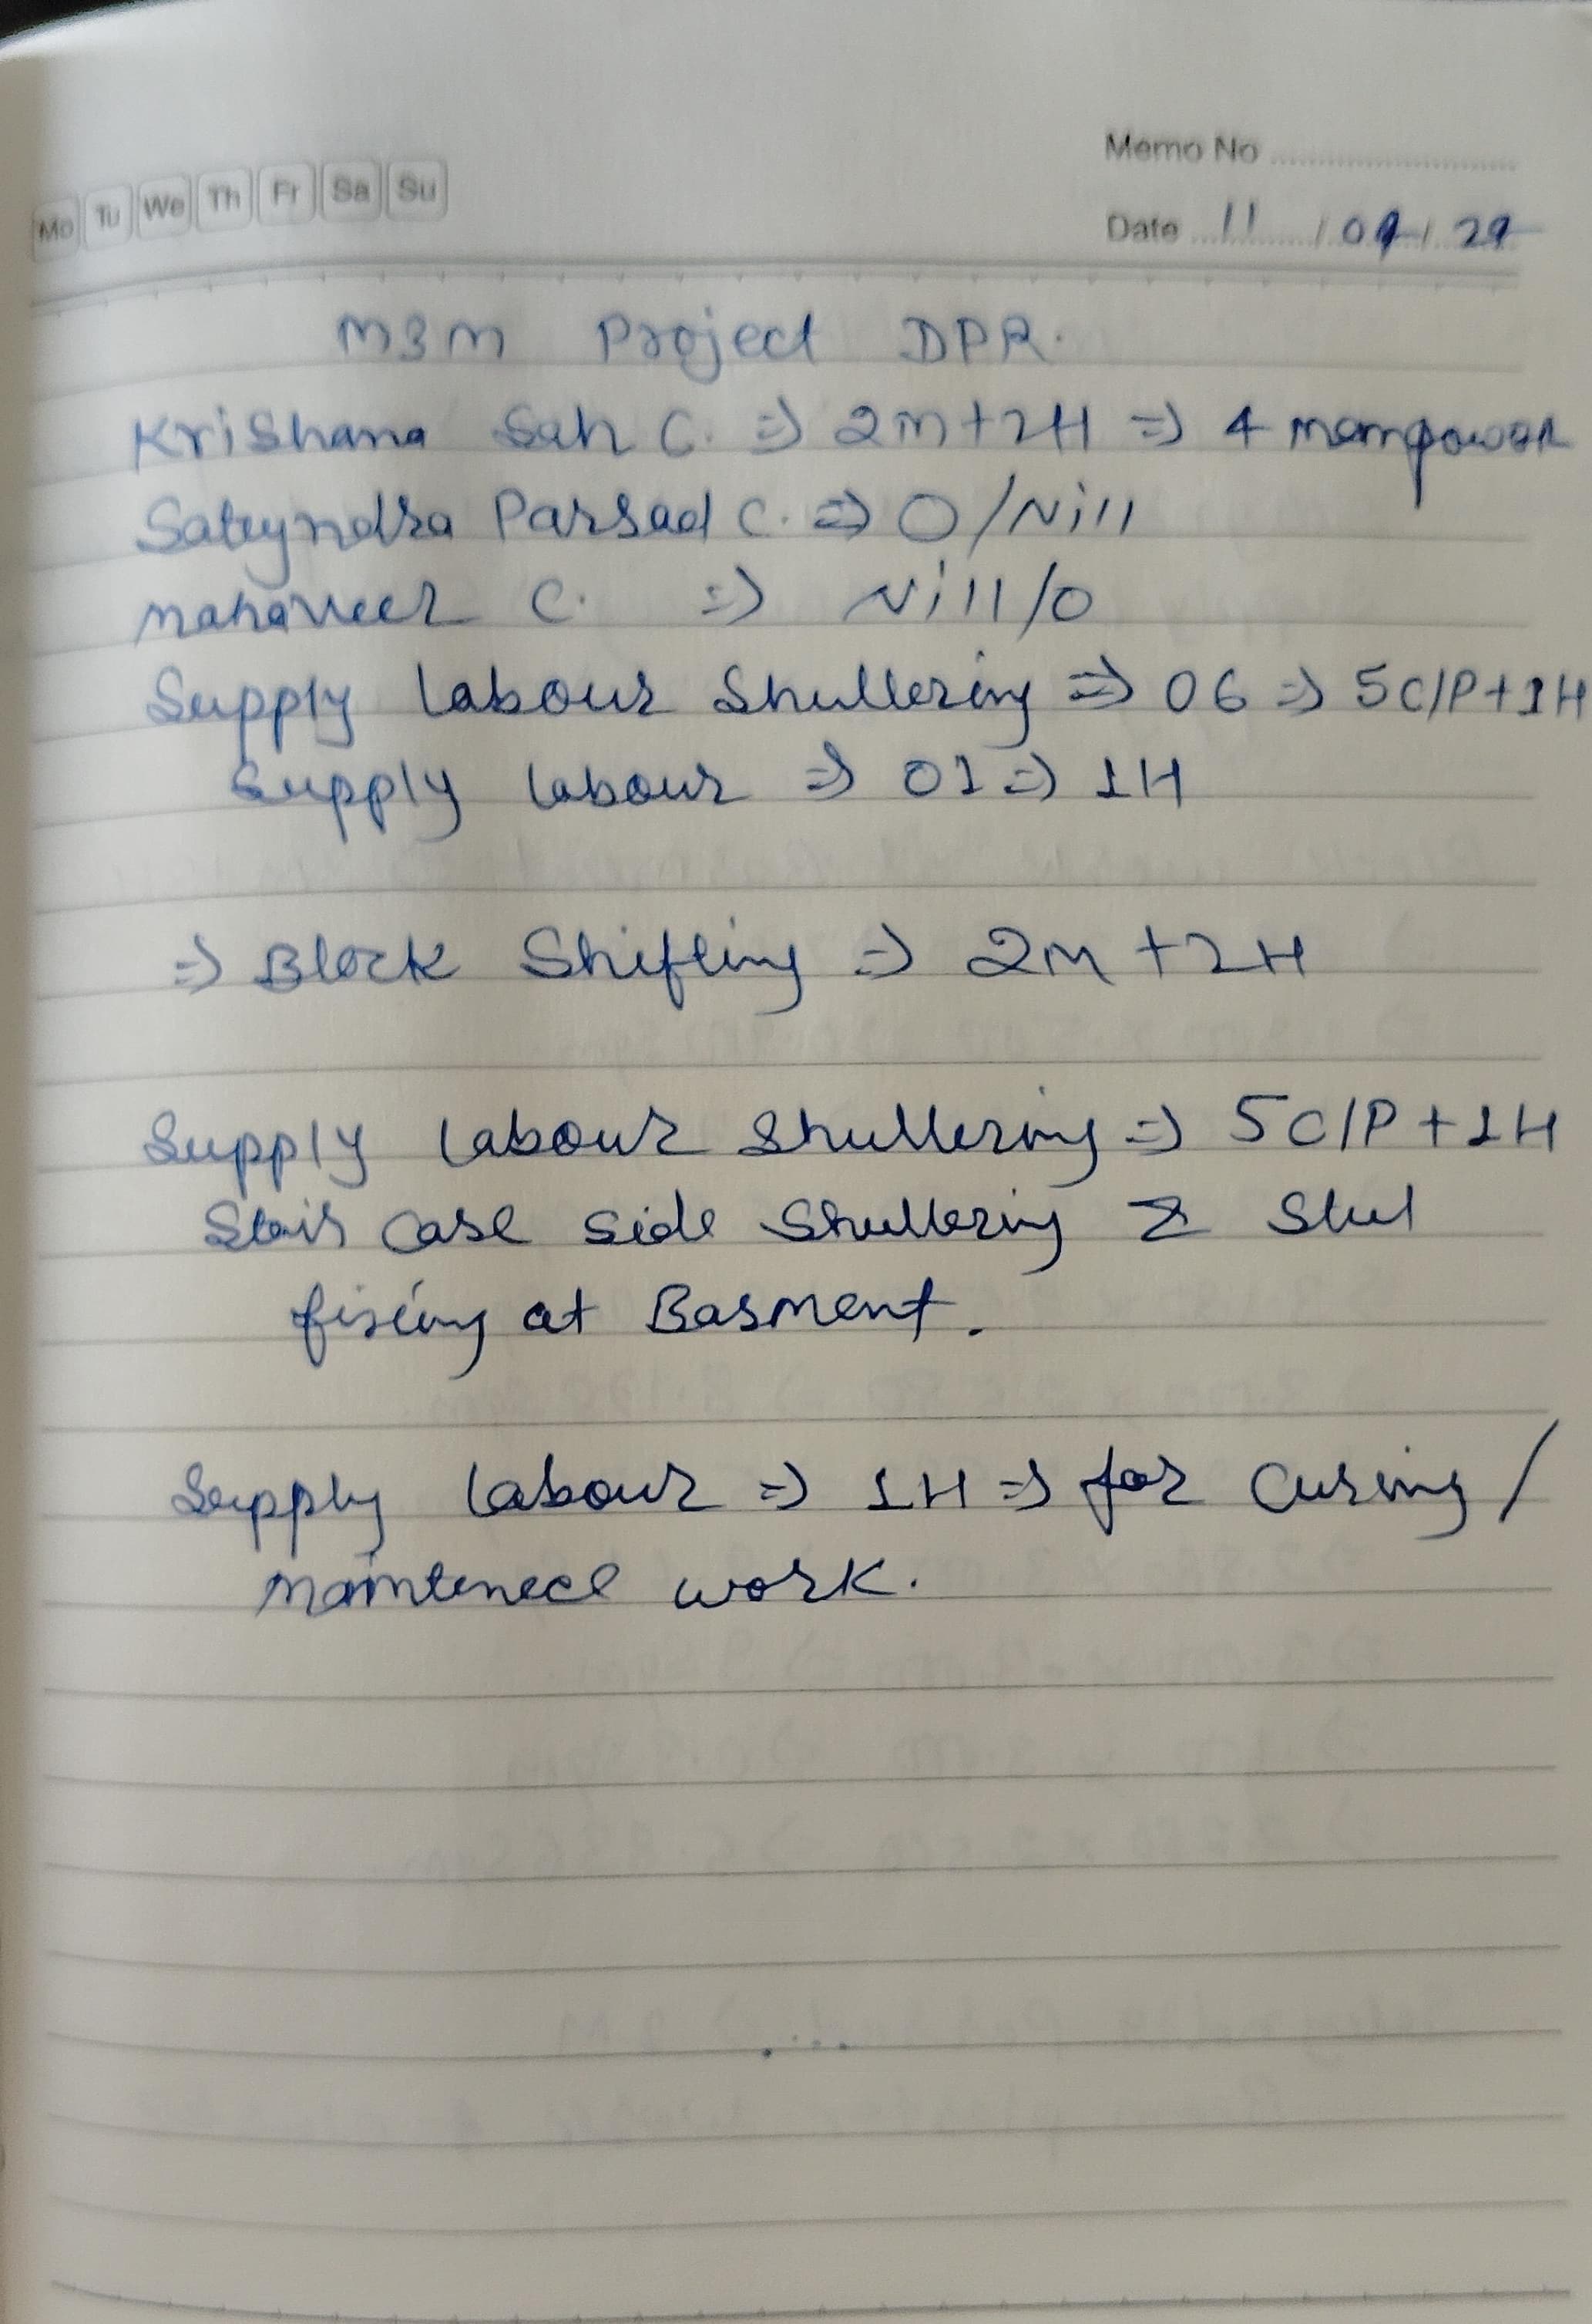 Memo No
Mo Tu We Th Fr Sa Su
Date 11 / 09 / 24
M3M Project DPR.
Krishana Sah C. => 2M+2H => 4 mampower
Sateyndra Parsad C. => 0/Nill
mahaveer C. => Nill/0
Supply labour Shuttering => 06 => 5C/P+1H
Supply labour => 01 => 1H
=> Block Shifting => 2M +2H
Supply labour Shuttering => 5C/P+1H
Stair case side Shuttering & Stul
fixing at Basment.
Supply labour => 1H => for Curing/
maintenece work.